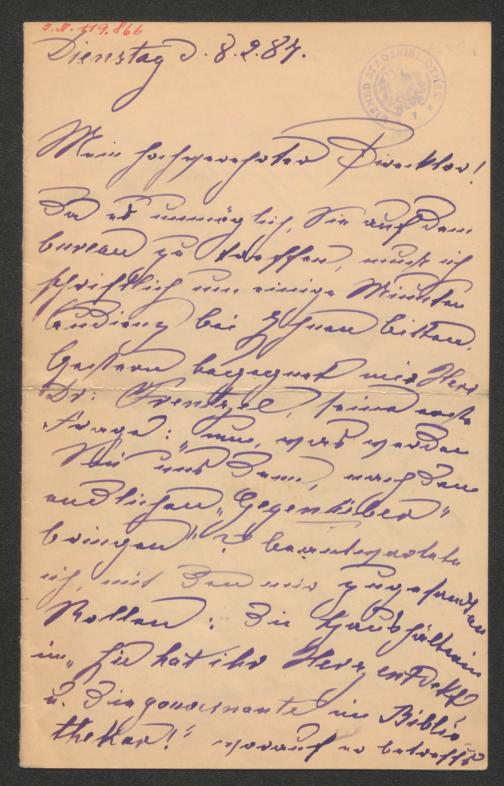 J.N. 119.866
Dienstag d. 8.2.87.
WIENER STADTBIBLIOTHEK
Mein hochverehrter Direktor!
Da es unmöglich, Sie auf dem
bureau zu treffen, muß ich
schriftlich um einige Minuten
Audienz bei Ihnen bitten.
Gestern begegnet mir Herr
Dr: Frenzel, seine erste
Frage: "nun, was werden
Sie uns denn, nach dem
endlichen „Gegenüber"
bringen"? beantwortete
ich, mit den mir zugesandten
Rollen: Die Haushälterin
in „Sie hat ihr Herz entdekt
u. die gouvernante im Biblio-
thekar!" worauf er